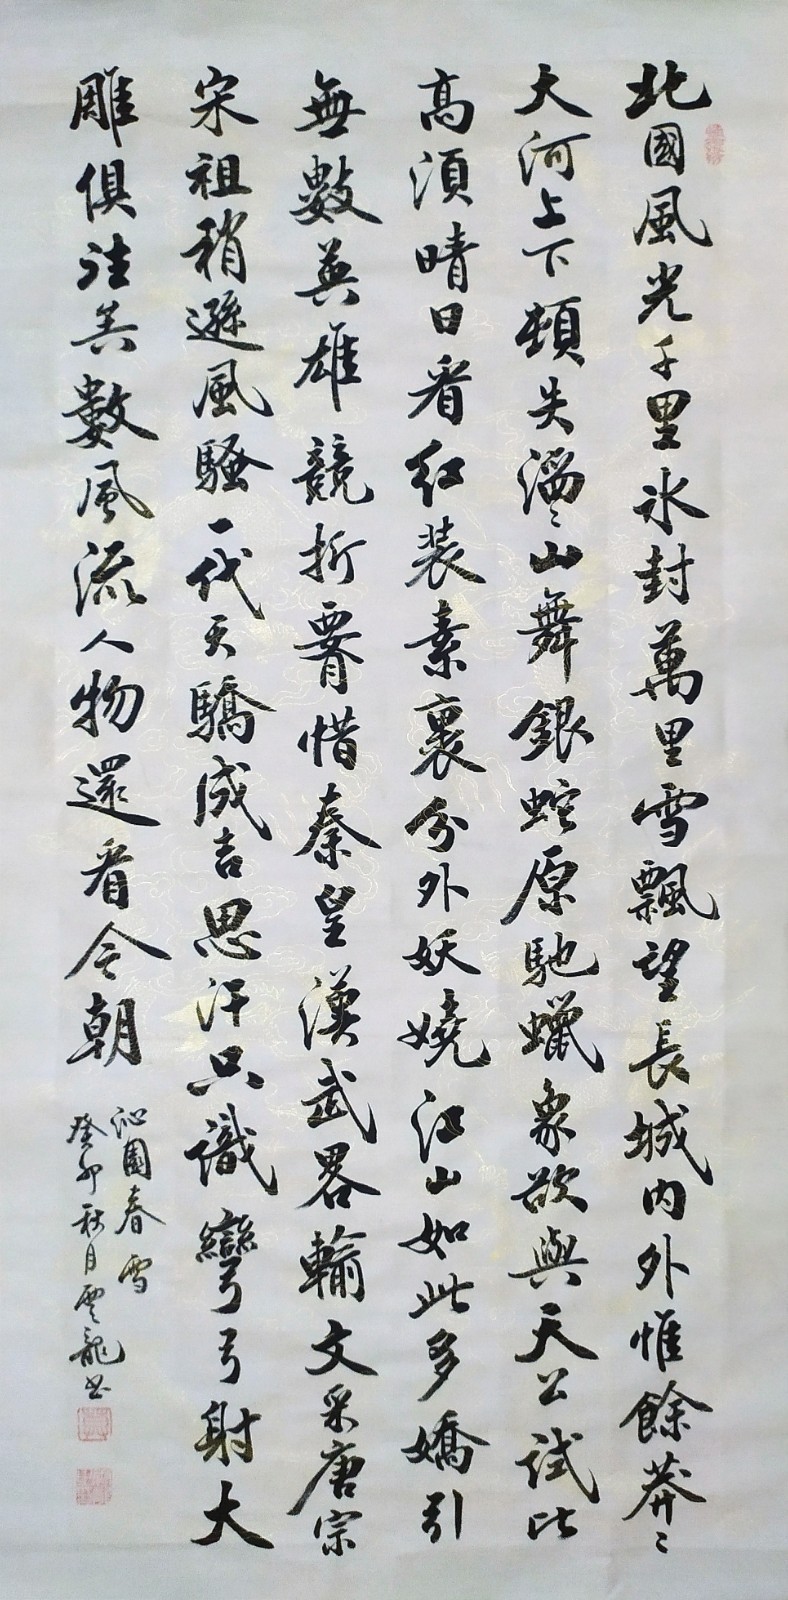 北國風光千里氷封萬里雪飄望長城內外惟餘莽〻
大河上下頓失滔〻山舞銀蛇原馳蠟象欲與天公試比
高須晴日看紅装素裹分外妖嬈江山如此多嬌引
無數英雄競折署惜秦皇漢武畧輸文采唐宗
宋祖稍遜風騷一代天驕成吉思汗只識彎弓射大
雕俱往矣數風流人物還看今朝
沁園春雪
癸卯秋月雲龍书